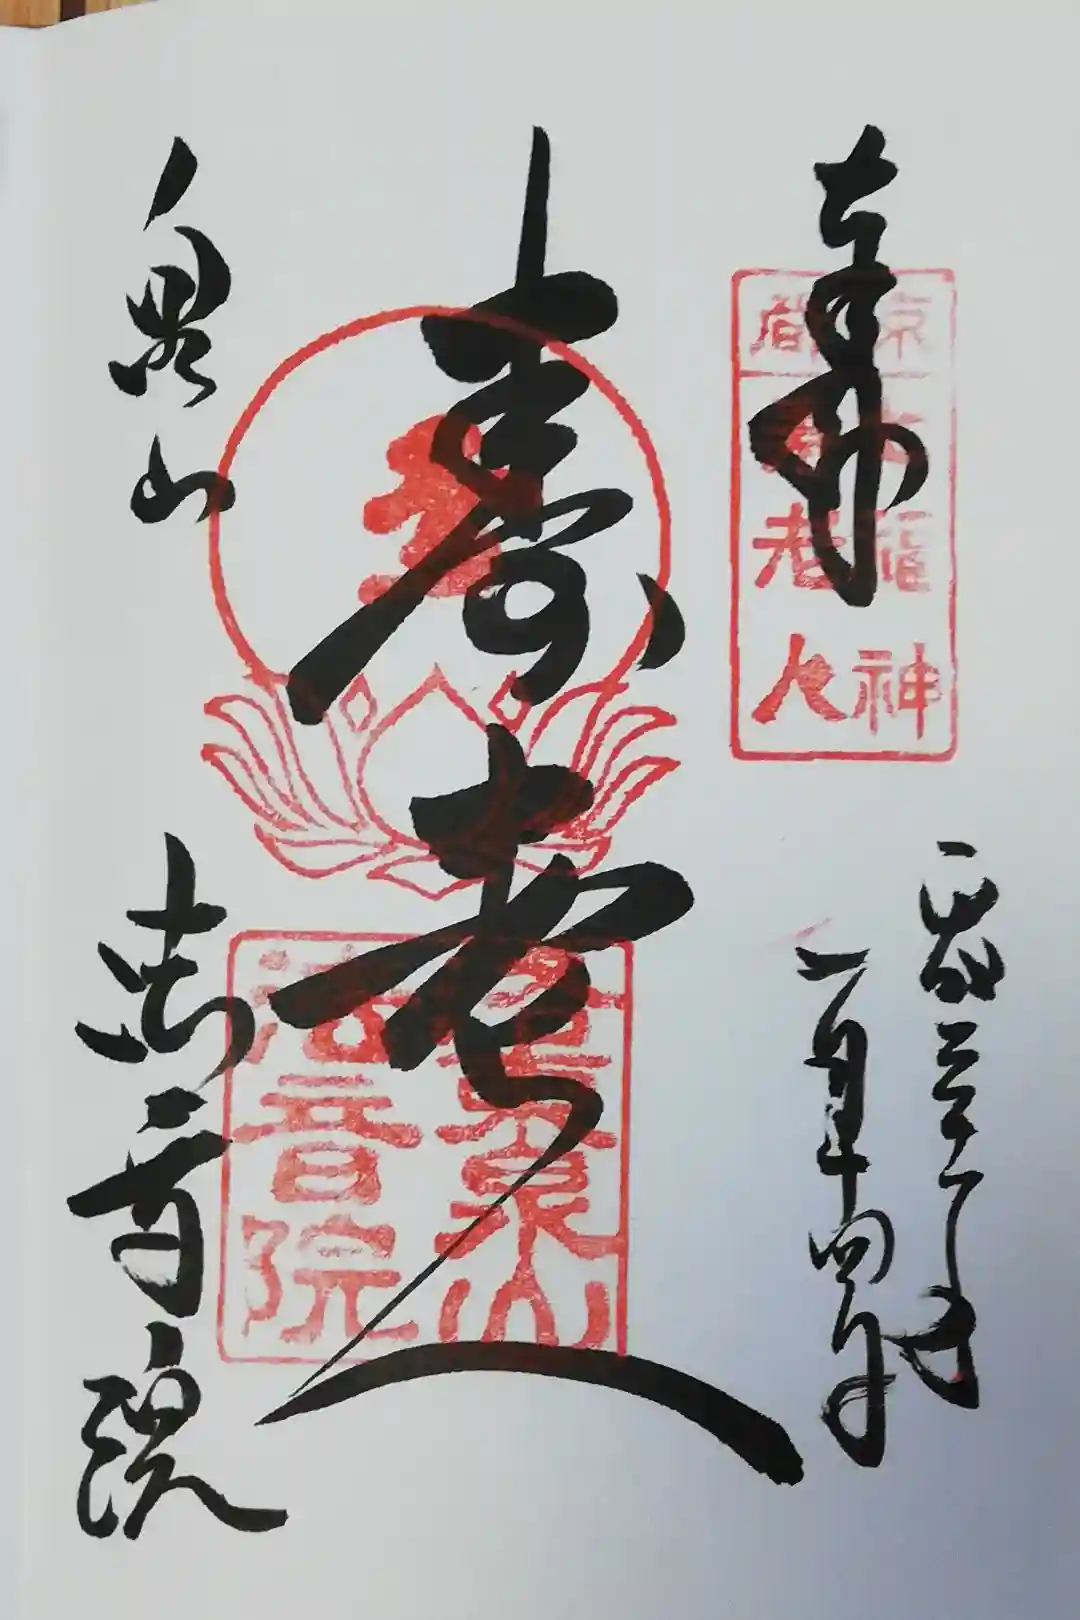 奉拝
京都
七福神
寿老人
一月十四日
壽老人
泉山
法音院
泉山
法音院